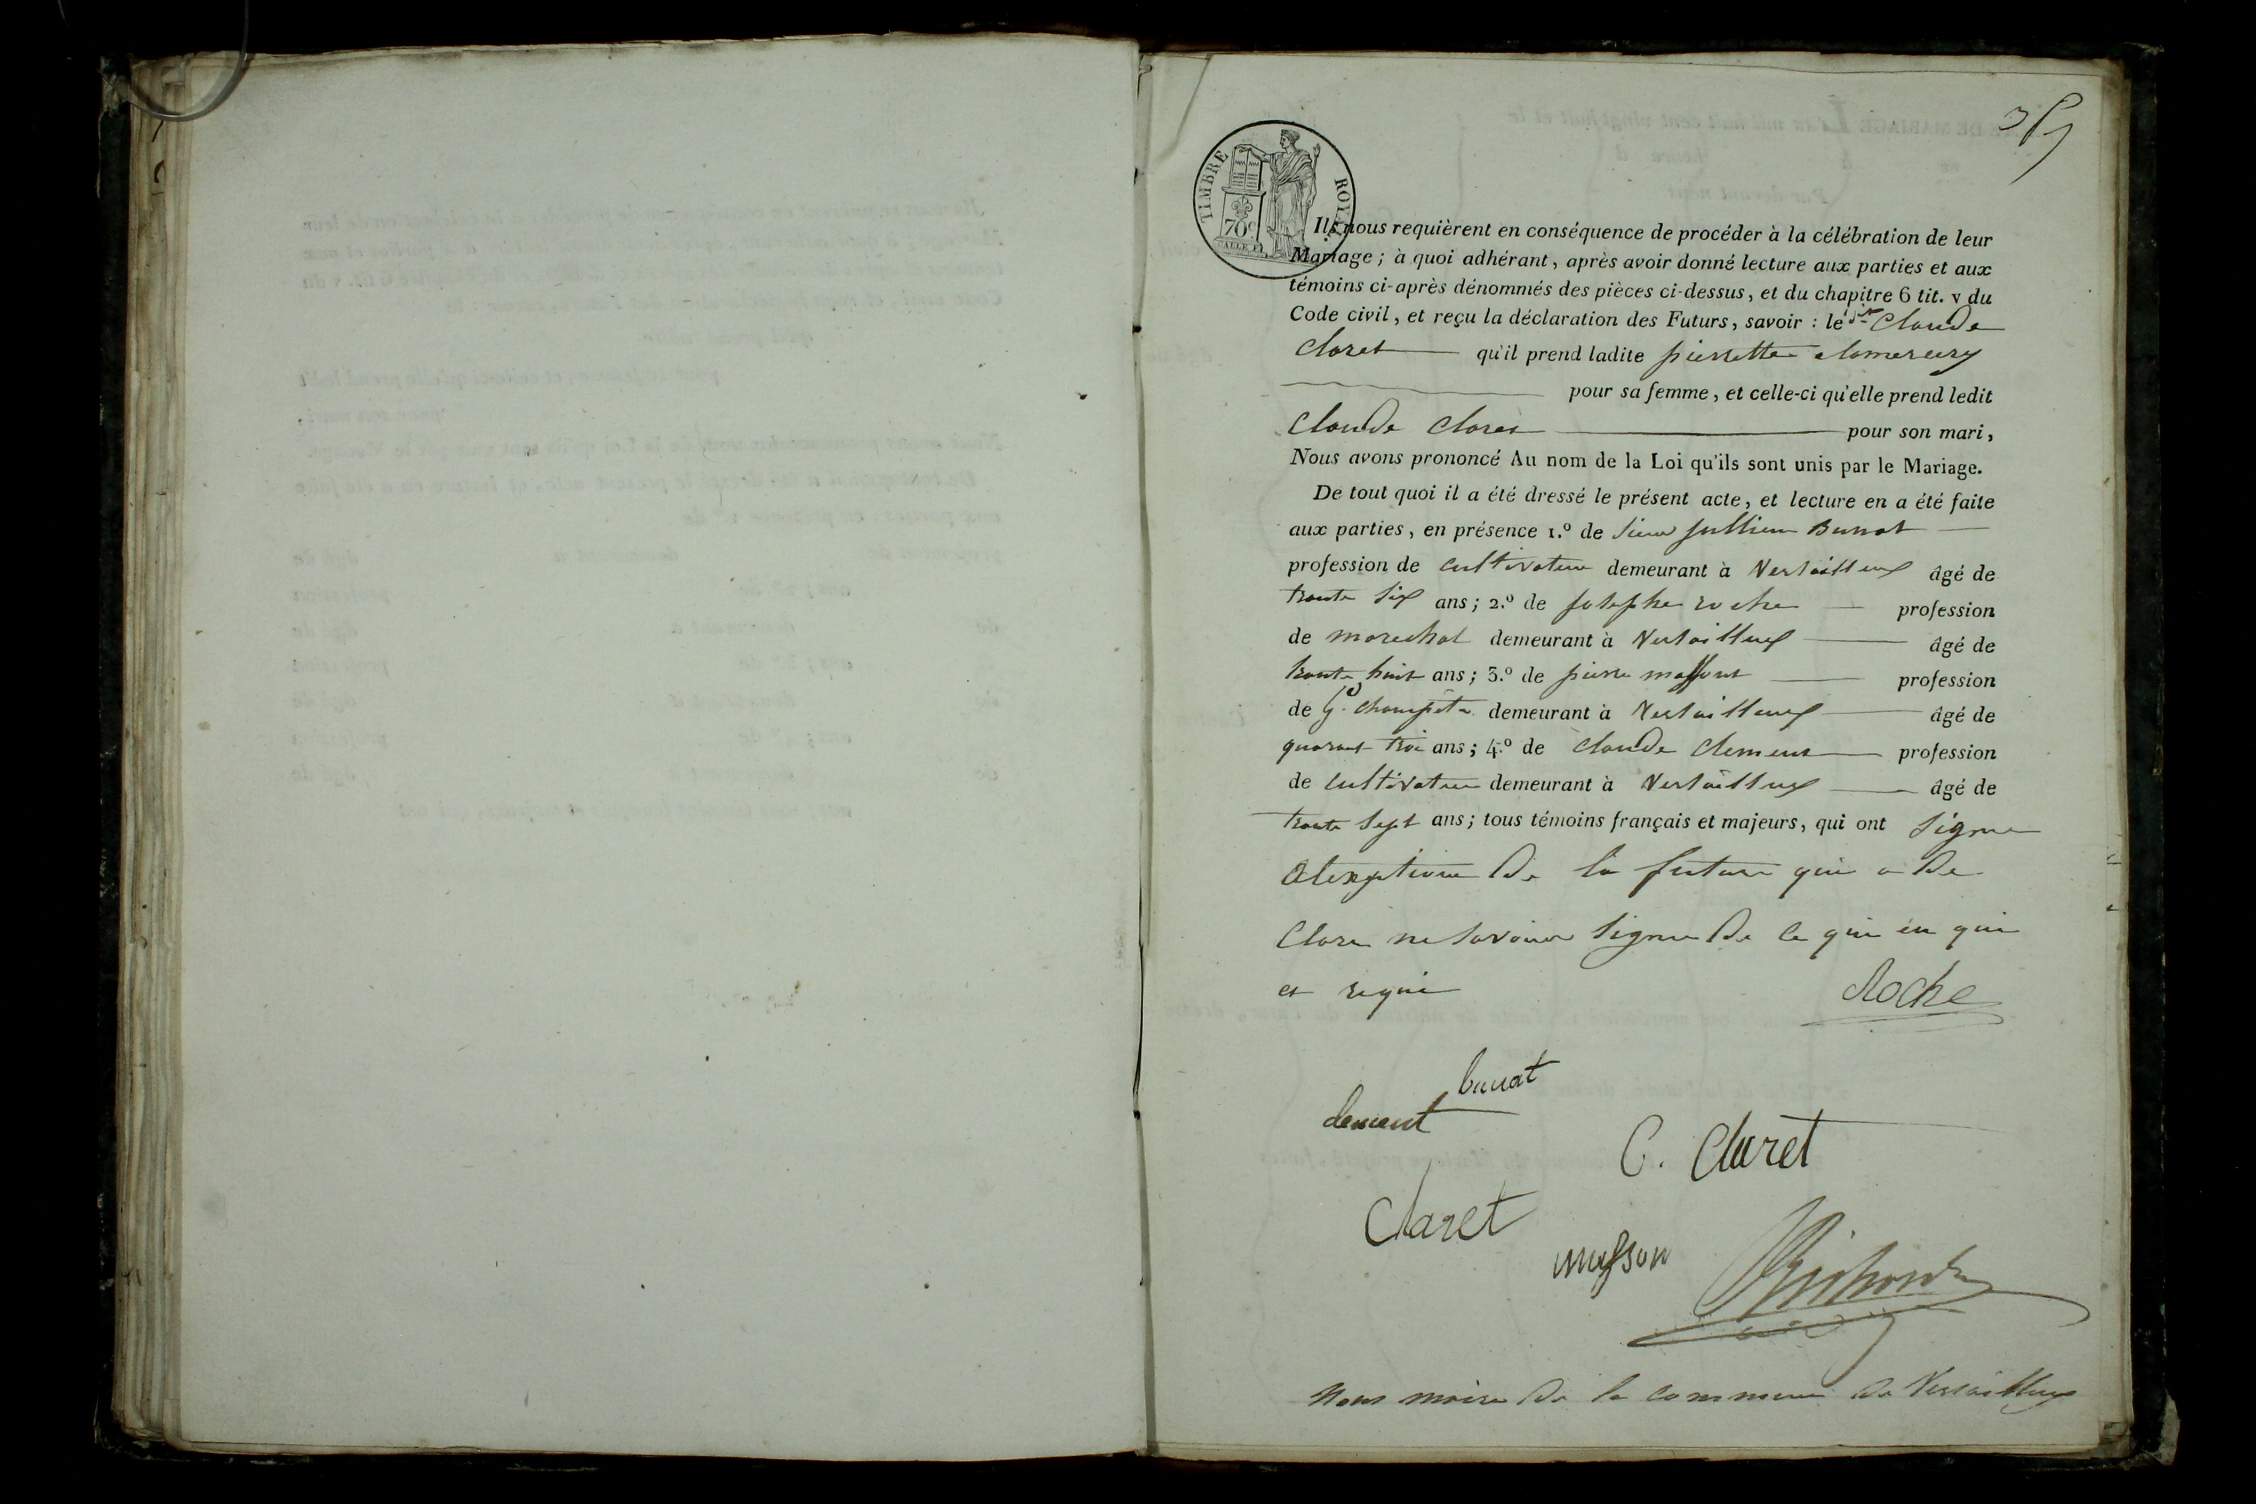 367
TIMBRE ROYAL
70c
Ils nous requièrent en conséquence de procéder à la célébration de leur
Mariage ; à quoi adhérant, après avoir donné lecture aux parties et aux
témoins ci-après dénommés des pièces ci-dessus, et du chapitre 6 tit. v du
Code civil, et reçu la déclaration des Futurs, savoir : le Sr Claude
Claret qu'il prend ladite pierrette
pour sa femme, et celle-ci qu'elle prend ledit
Claude Claret pour son mari,
Nous avons prononcé Au nom de la Loi qu'ils sont unis par le Mariage.
De tout quoi il a été dressé le présent acte, et lecture en a été faite
aux parties, en présence 1.º de Sieur Jullien Burrat
profession de cultivateur demeurant à Versailleux âgé de
trante six ans ; 2.º de Josephe roche profession
de marechal demeurant à Versailleux âgé de
trante huit ans ; 3.º de pierre massont profession
de Gd champêtr demeurant à Versailleux âgé de
quarant troi ans ; 4.º de Claude Clement profession
de cultivateur demeurant à Versailleux âgé de
trante Sept ans ; tous témoins français et majeurs, qui ont signe
de la future qui a de
Clare ne savoir signe de ce qui
et requi
Roche
burrat
clement
C. Claret
Claret
masson
Richard
Nous maire de la commune de Versailleux